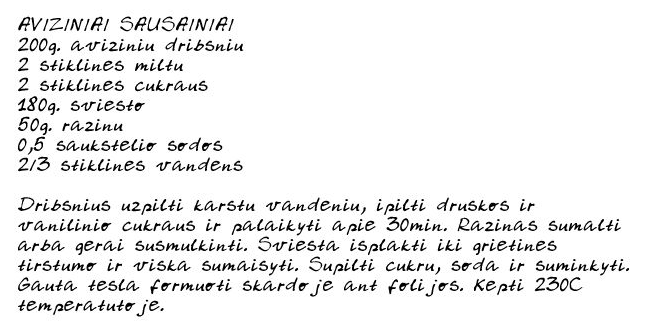 AVIZINIAI SAUSAINIAI
200g. aviziniu dribsniu
2 stiklines miltu
2 stiklines cukraus
180g. sviesto
50g. razinu
0,5 saukstelio sodos
2/3 stiklines vandens
Dribsnius uzpilti karstu vandeniu, ipilti druskos ir
vanilinio cukraus ir palaikyti apie 30min. Razinas sumalti
arba gerai susmulkinti. Sviesta isplakti iki grietines
tirstumo ir viska sumaisyti. Supilti cukru, soda ir suminkyti.
Gauta tesla formuoti skardoje ant folijos. Kepti 230C
temperatutoje.